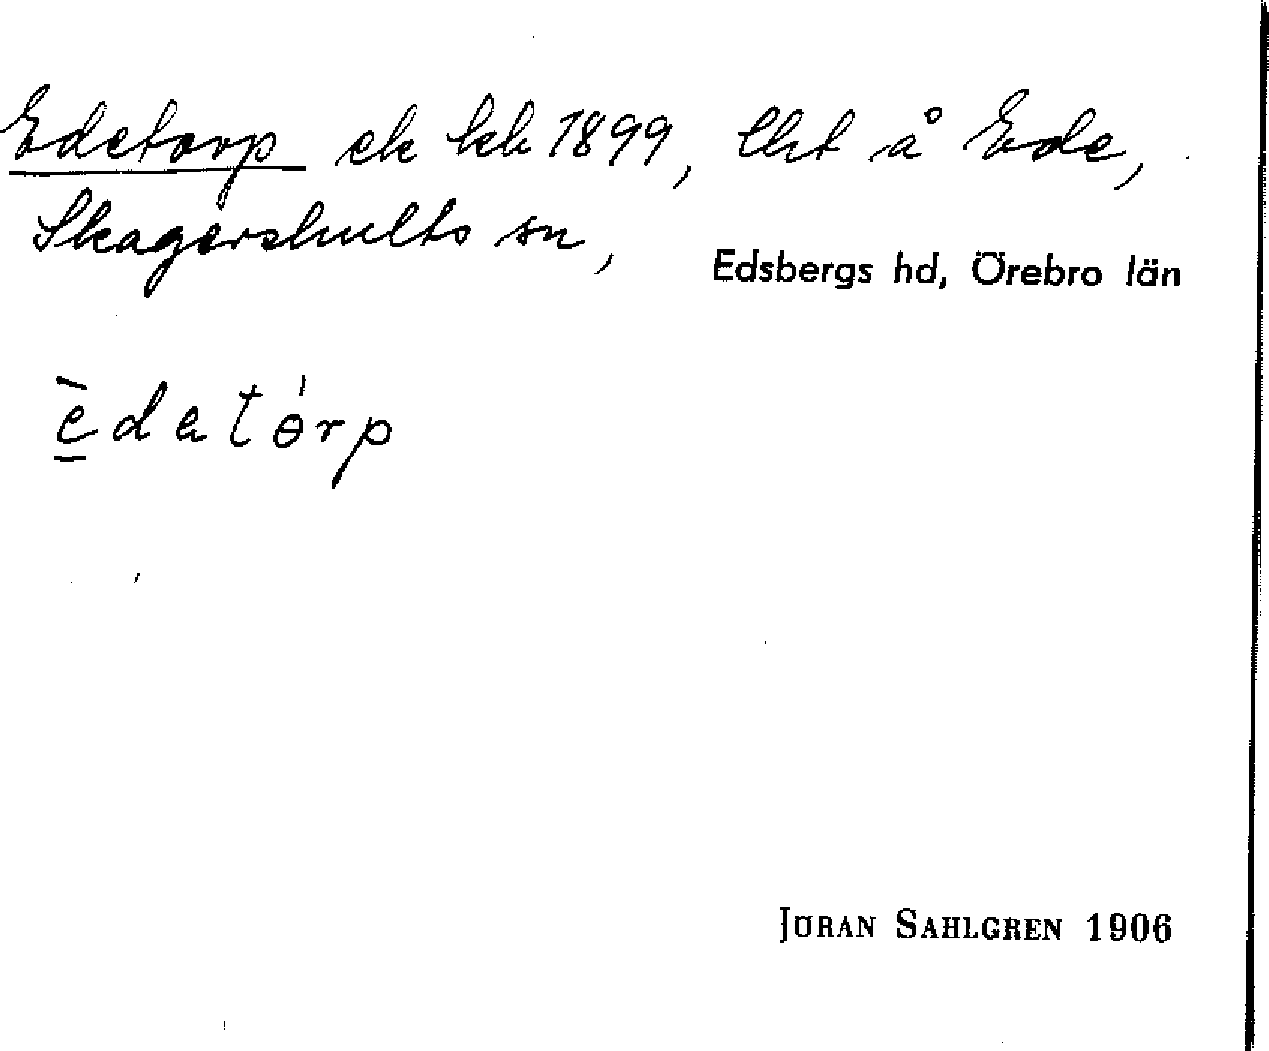 Edetorp ek kk 1899, lht å Ede,
Skagershults sn, Edsbergs hd, Örebro län
èdatɵ́rp
JÖRAN SAHLGREN 1906